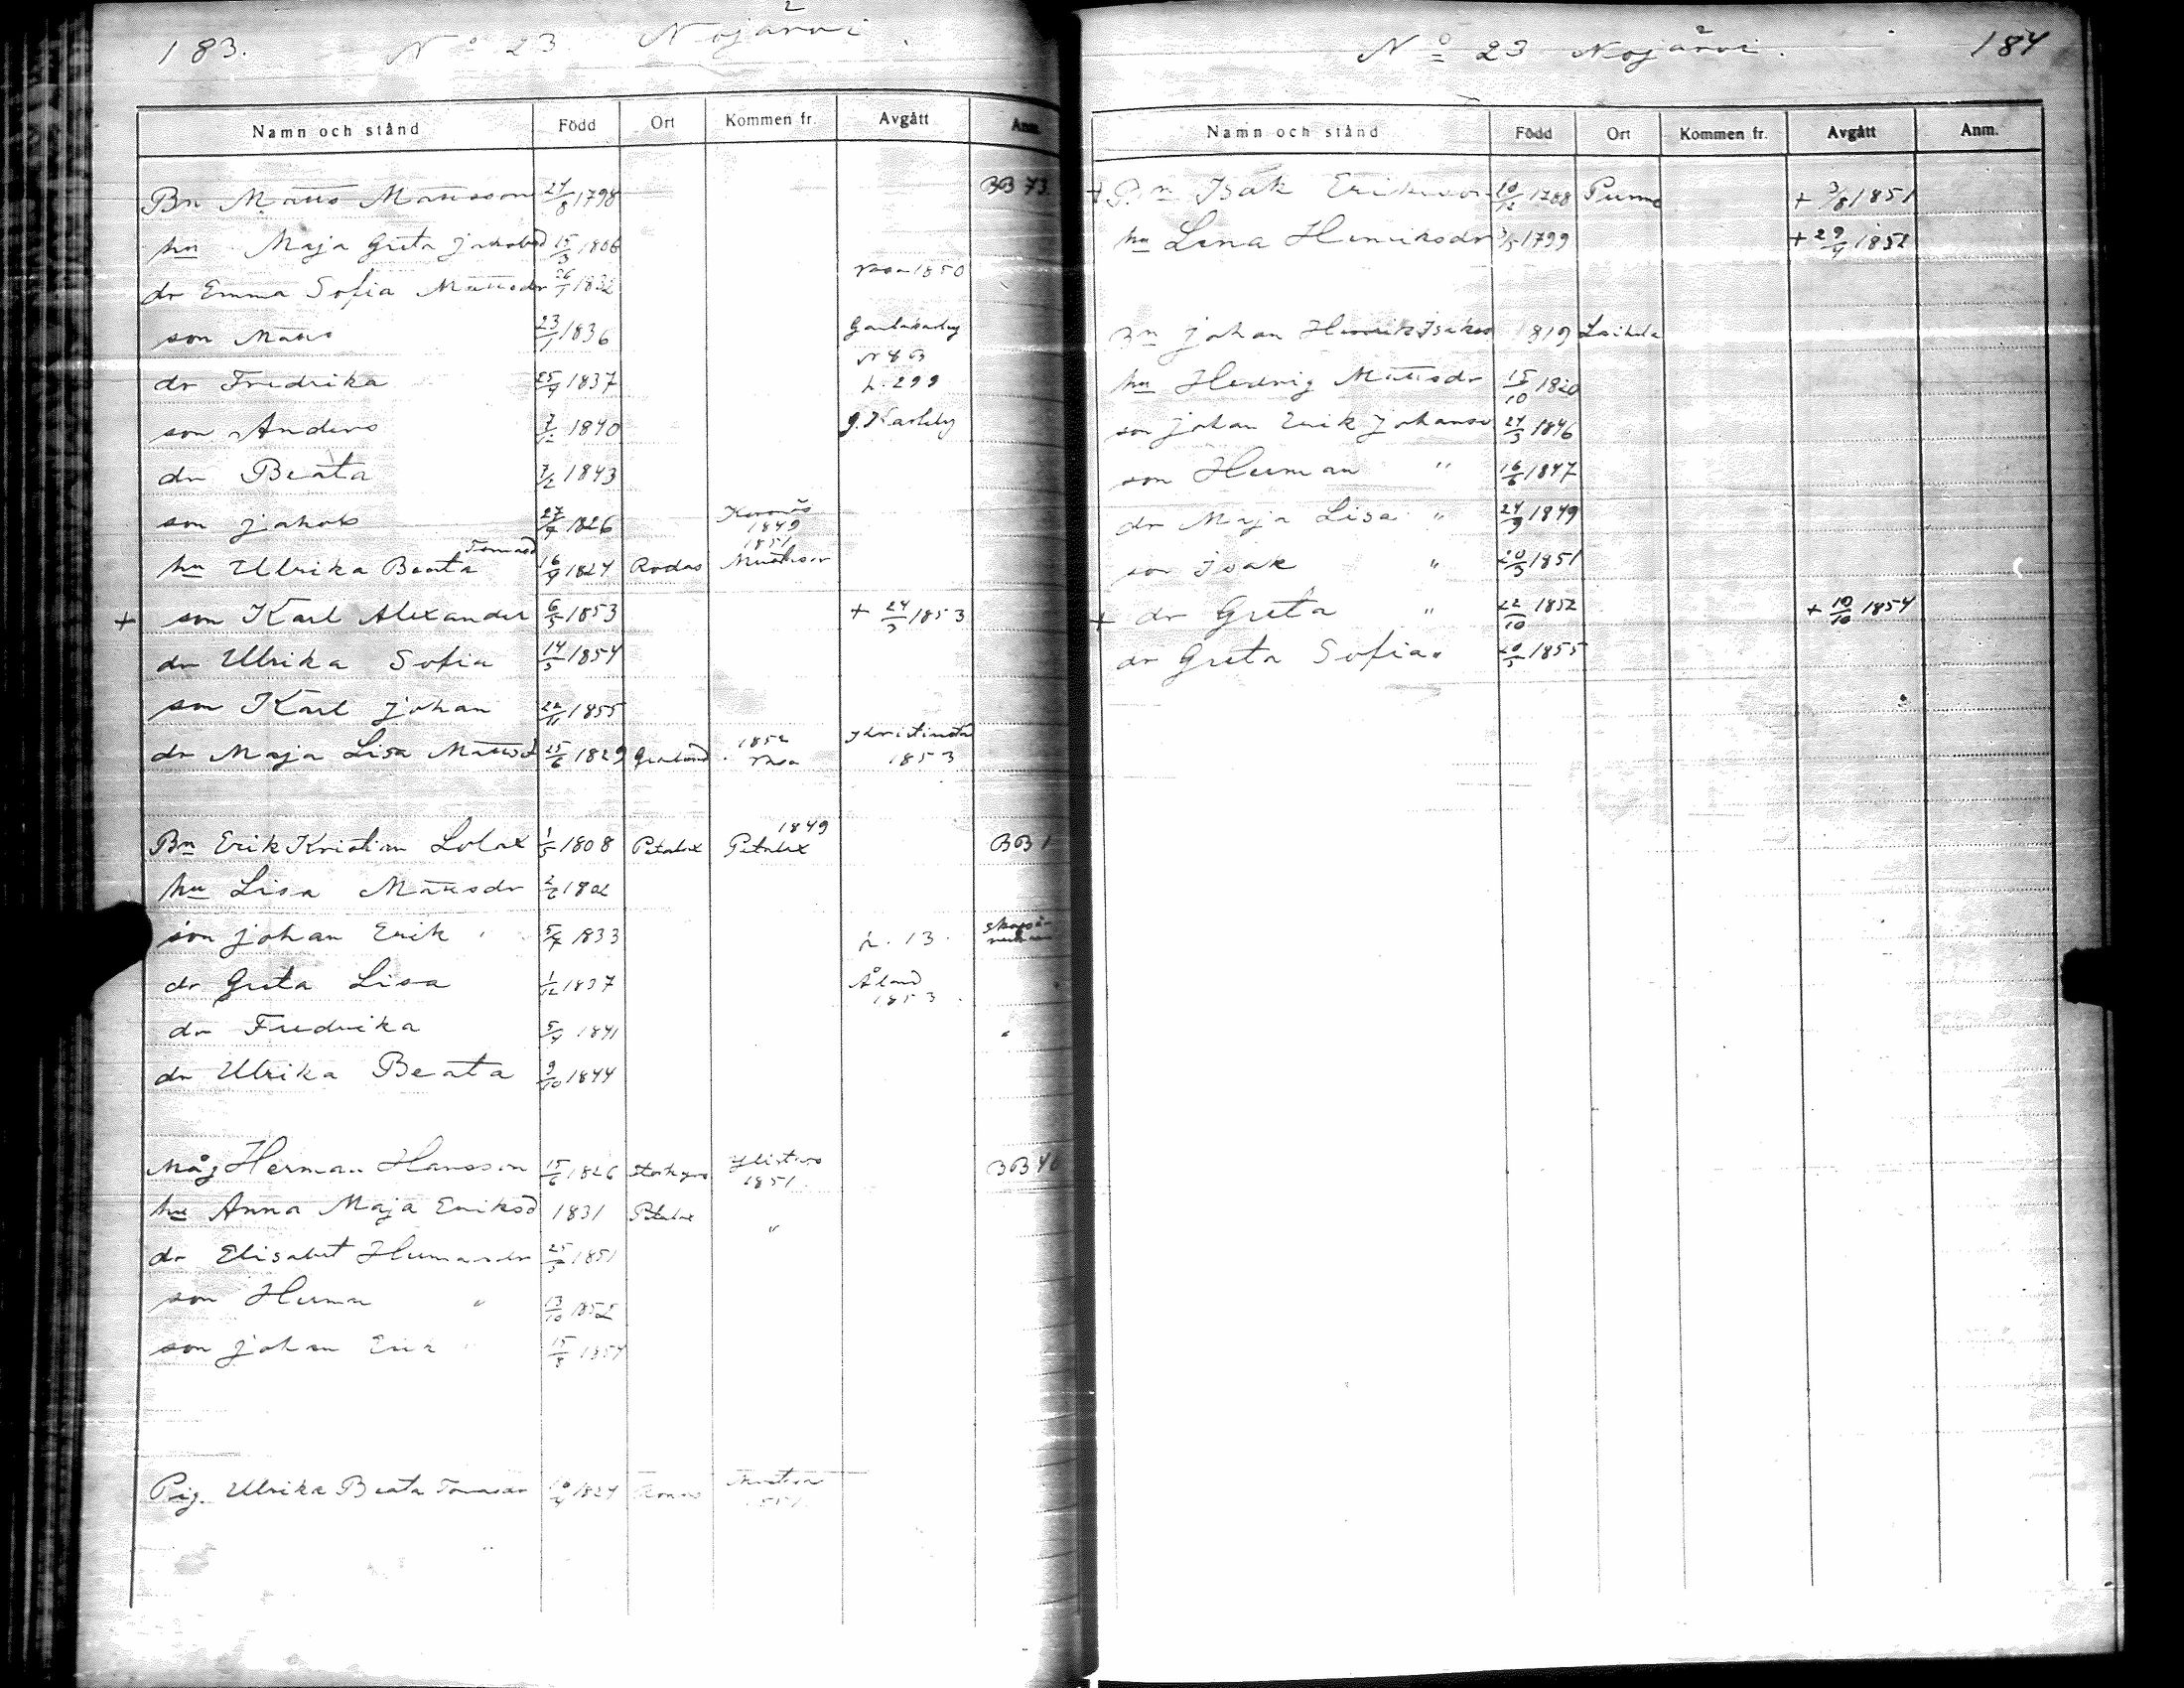 183. No 23 Nojärvi
Namn och stånd Född Ort Kommen fr. Avgått Anm.
Bn Matts Mattsson 24/8 1798 BB 73.
hu Maja Greta Jakobsd 15/3 1806
dr Emma Sofia Mattsdr 26/1 1832 1850
son Matts 23/1 1836 Gamlakarleby
N 83
dr Fredrika 25/9 1837 L. 299
son Anders 7/12 1840 G. Karleby
dr Beata 7/2 1843
son Jakob 27/7 1826 Korsnäs 1849
1851
hu Ulrika Beata Tomasd 16/4 1824
+ son Karl Alexander 6/3 1853 + 24/3 1853
dr Ulrika Sofia 14/3 1854
son Karl Johan 22/11 1855
dr Maja Lisa Mattsd 25/6 1829 1852 Kristinestad
1853
Bn Erik Kristian Lolax 1/5 1808 Petalax Petalax 1849 BB 1
hu Lisa Mattsdr 2/6 1802
son Johan Erik 5/7 1833 L. 13.
dr Greta Lisa 1/12 1837 Åland
1853.
dr Fredrika 5/4 1841
dr Ulrika Beata 9/10 1844
Måg Herman Hansson 15/6 1826 Storkyro Ylistaro BB 46
1851.
hu Anna Maja Eriksd 1831 Petalax "
dr Elisabet Hermansdr 25/3 1851
son Herman " 13/10 1852
son Johan Erik " 15/8 1854
Pig. Ulrika Beata Tomasdr 1824
1851
No 23 Nojärvi. 184
Namn och stånd Född Ort Kommen fr. Avgått Anm.
+ Bn Isak Eriksson 20/12 1788 + 3/8 1851
hu Lena Henriksdr 3/5 1799 + 29/4 1852
Bn Johan Henrik Isaks 1819 Laihela
hu Hedvig Mattsdr 15/10 1820
son Johan Erik Johanss 24/3 1846
son Herman " 16/6 1847
dr Maja Lisa " 24/9 1849
son Isak " 20/3 1851
+ dr Greta " 22/10 1852 + 10/10 1854
dr Greta Sofia " 20/5 1855